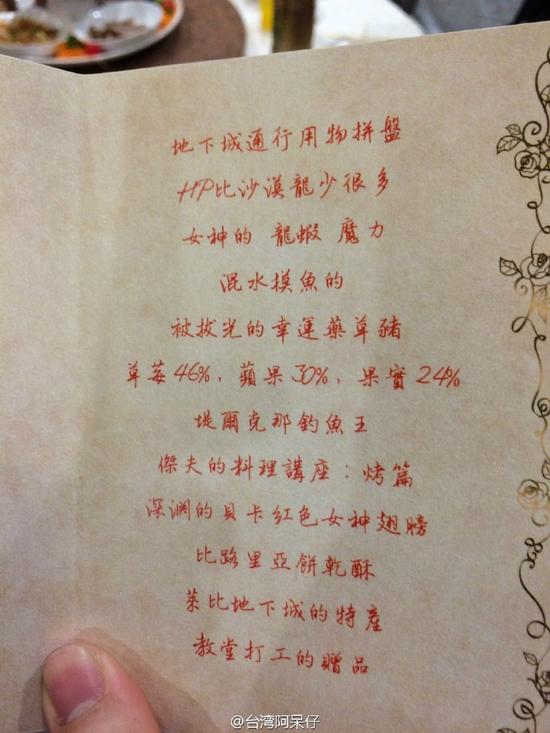 地下城通行用物拼盤
HP比沙漠龍少很多
女神的 龍蝦 魔力
混水摸魚的
被拔光的幸運藥草豬
草莓46%，蘋果30%，果實24%
堤爾克那釣魚王
傑夫的料理講座：烤篇
深淵的貝卡紅色女神翅膀
比路里亞餅乾酥
萊比地下城的特產
教堂打工的贈品
@台湾阿呆仔